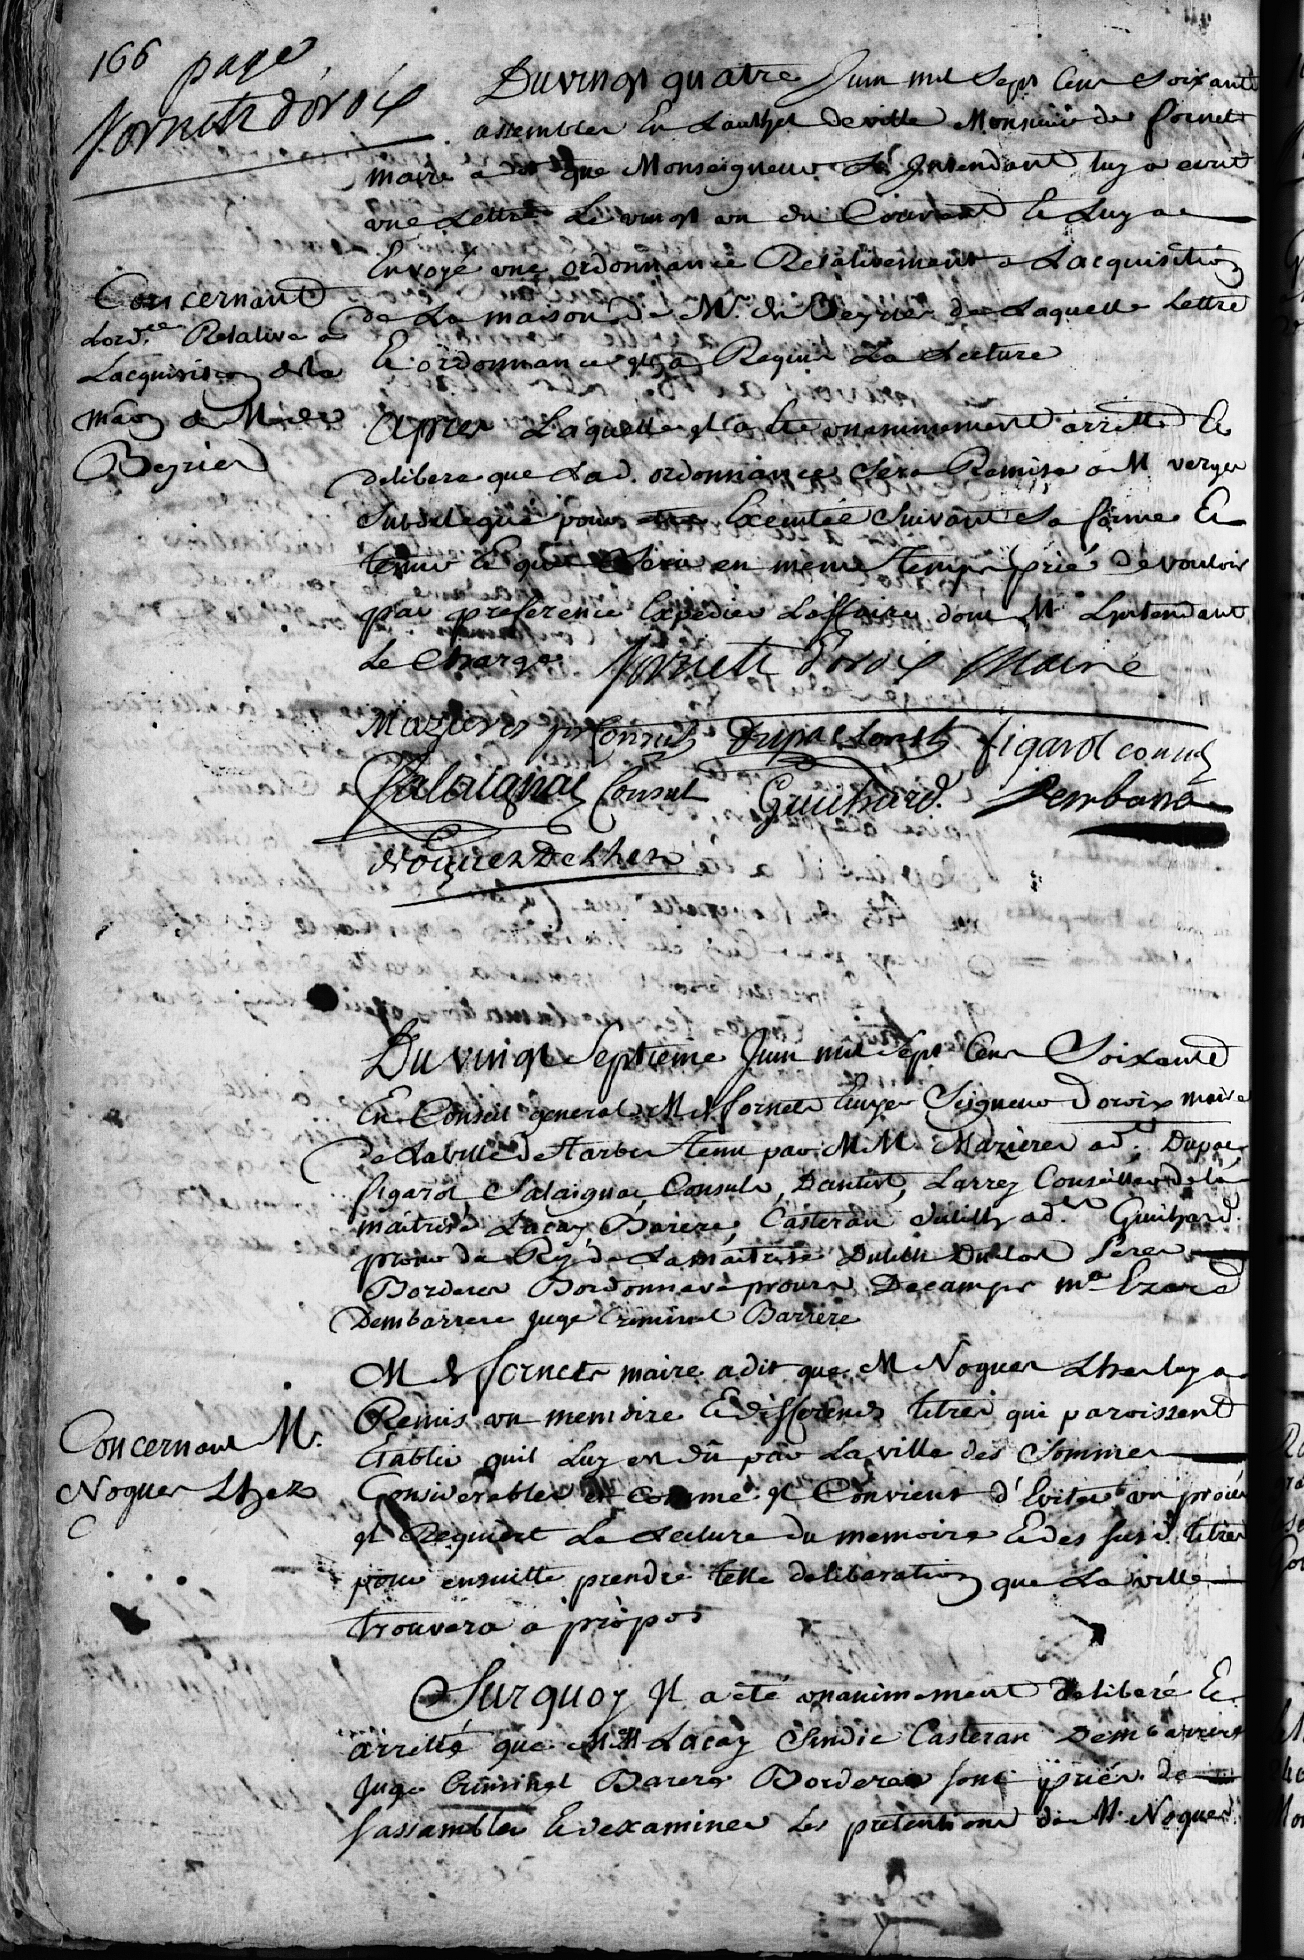 166 page
fornets d'oroix
Du vingt quatre Juin mil Sept Cens Soixante
assembles En Lauthel de ville Monsieur de fornets
maire a dit que Monseigneur L'Intendant luy a ecrit
une Lettre Le vingt un du Courant & Luy a
Envoyé une ordonnance Relativement a Lacquisition
de La maison de M. de Beyries de Laquelle Lettre
& ordonnance il a Requis La Lecture
Concernant
Lord.ce Relative a
Lacquisition de la
maon de M. de
Beyries
Apres Laquelle il a ete unanimement arretté &
delibere que Lad. ordonnance Sera Remise a M verges
Subdelegué pour Executée Suivant Sa forme &
teneur & que Sera en meme temps prié de vouloir
par preference Expedier Laffaire dont M Lintendant
Le Charge fornets d'oroix Maire
Mazieres pr Consul Dupac Consul figarol consul
Salaignac Consul Guichard. Dembarre
Noguez de Lhez
Du vingt Septieme Juin mil Sept Cens Soixante
En Conseil general M de fornets Ecuyer Seigneur Doroix maire
de La ville de Tarbes tenu par M M. Mazieres ad.t Dupac
figarol Salaignac Consuls, Dantist, Larrey Conseiller de la
maitrise Lacay, Barere, Casteran ad. Guichard.
procur du Roy de La maitrise
Borderes Bordonnave procurs Decamps
Dembarrere Juge Criminel Barrere
M de fornets maire a dit que M Noguez Lhez luy a
Remis un memoire & differends titres qui paroissent
Etablir quil Luy est dû par La ville des Sommes
Considerables & comme il Convient d'Eviter un procès
il Requiert La Lecture du memoire & des susd. titres
pour ensuitte prendre telle deliberation que La ville
trouvera a propos
Concernant M.
Noguez Lhez
Surquoy Il a eté unanimement deliberé &
arretté que M M Lacay Sindic Casteran Dembarrere
Juge Criminel Barere Borderes sont priés de
sassambler & dexaminer Les pretentions de M. Noguez